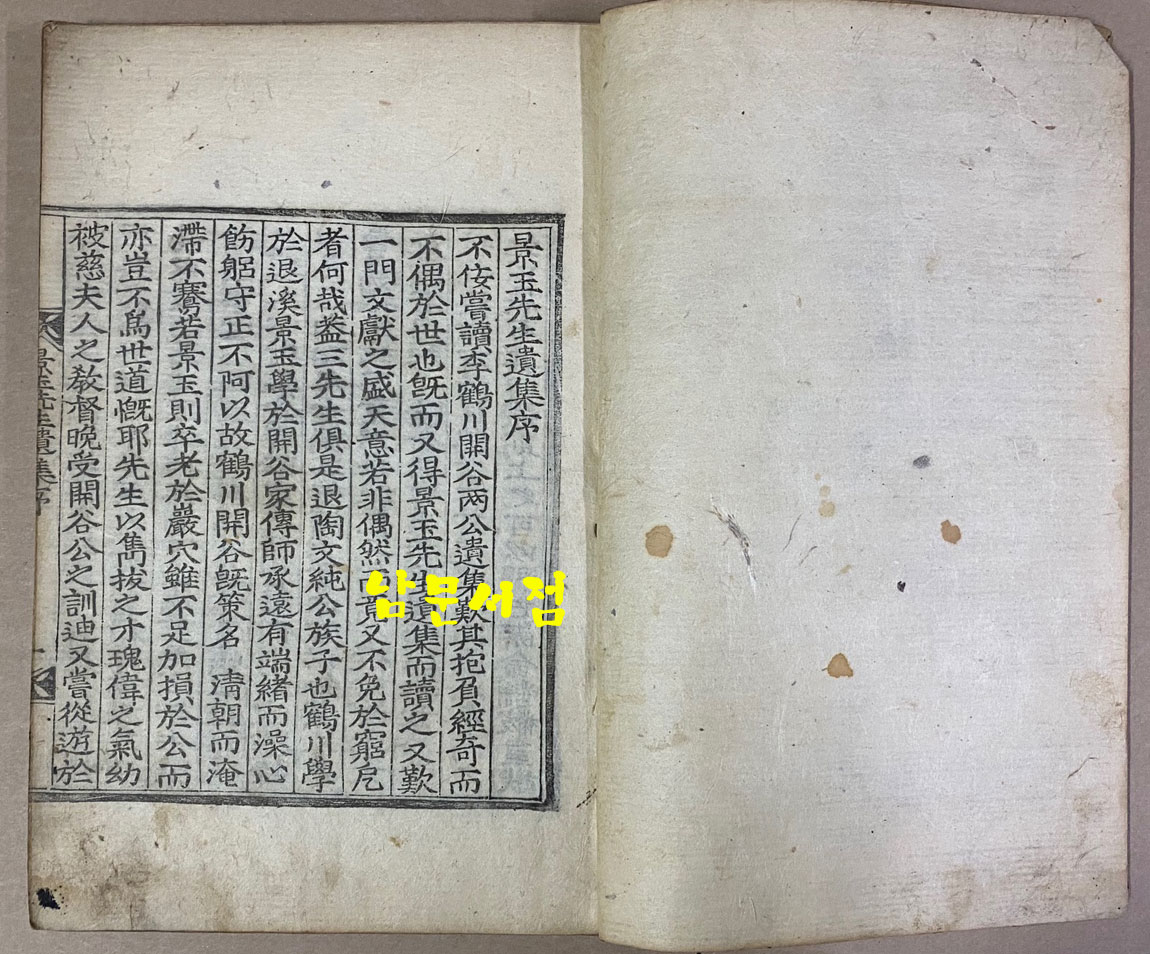 景玉先生遺集序
不佞嘗讀李鶴川開谷兩公遺集歎其抱負經奇而
不偶於世也旣而又得景玉先生遺集而讀之又歎
一門文獻之盛天意若非偶然而竟又不免於窮戹
者何哉盖三先生俱是退陶文純公族子也鶴川學
於退溪景玉學於開谷家傳師承遠有端緖而澡心
飭躬守正不阿以故鶴川開谷旣策名 淸朝而淹
滯不騫若景玉則卒老於巖穴雖不足加損於公而
亦豈不爲世道慨耶先生以雋拔之才瑰偉之氣幼
被慈夫人之敎督晩受開谷公之訓迪又嘗從遊於
景玉先生遺集序
남문서점